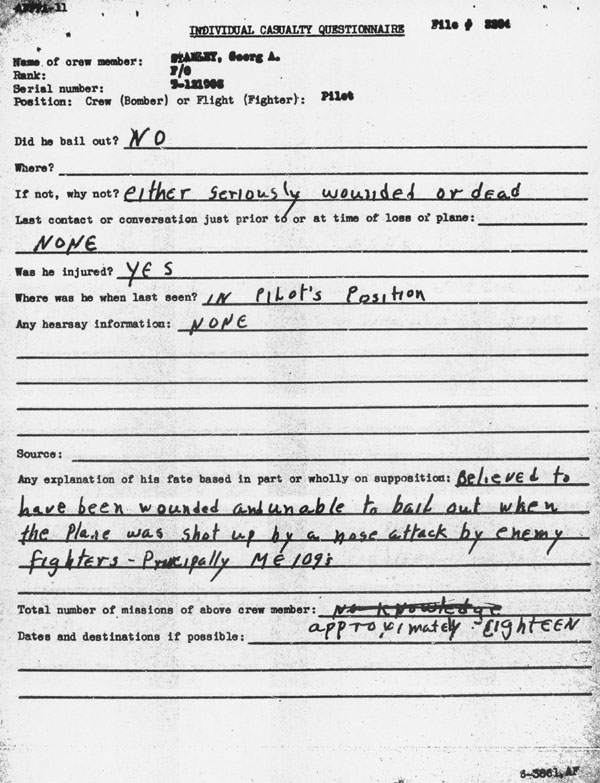 INDIVIDUAL CASUALTY QUESTIONNAIRE File #
Name of crew member: STANLEY, Georg A.
Rank: F/O
Serial number:
Position: Crew (Bomber) or Flight (Fighter): Pilot
Did he bail out? NO
Where?
If not, why not? either seriously wounded or dead
Last contact or conversation just prior to or at time of loss of plane:
NONE
Was he injured? YES
Where was he when last seen? IN PILOT'S POSITION
Any hearsay information: NONE
Source:
Any explanation of his fate based in part or wholly on supposition: Believed to
have been wounded and unable to bail out when
the Plane was shot up by a nose attack by enemy
fighters - Principally ME 109's
Total number of missions of above crew member: No knowledge
approximately - EIGHTEEN
Dates and destinations if possible: